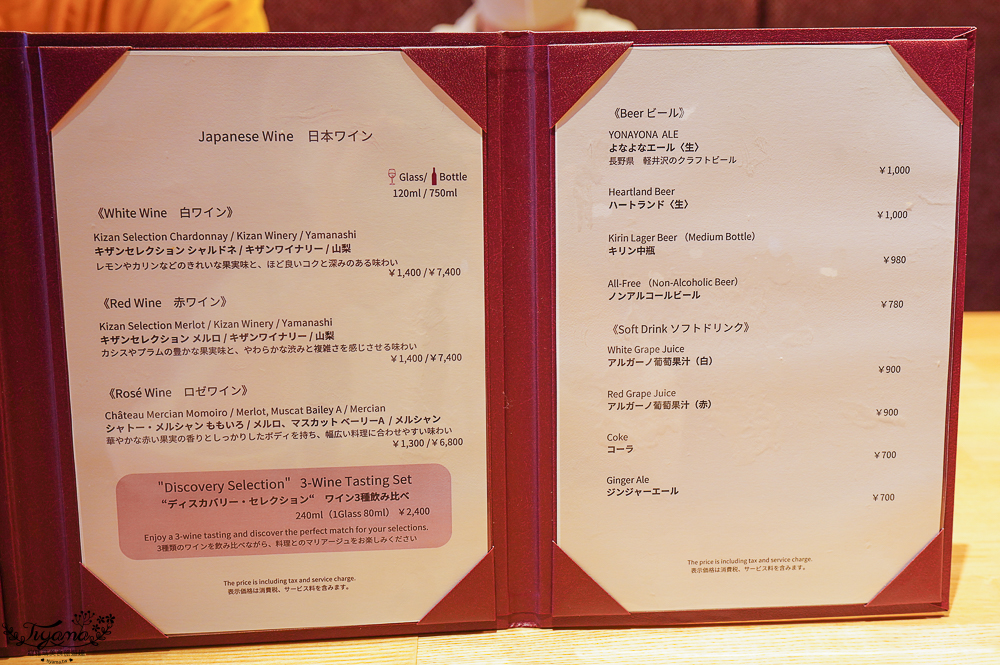 Japanese Wine 日本ワイン
Glass/ Bottle
120ml / 750ml
《White Wine 白ワイン》
Kizan Selection Chardonnay / Kizan Winery / Yamanashi
キザンセレクション シャルドネ / キザンワイナリー / 山梨
レモンやカリンなどのきれいな果実味と、ほど良いコクと深みのある味わい
￥1,400 /￥7,400
《Red Wine 赤ワイン》
Kizan Selection Merlot / Kizan Winery / Yamanashi
キザンセレクション メルロ / キザンワイナリー / 山梨
カシスやプラムの豊かな果実味と、やわらかな渋みと複雑さを感じさせる味わい
￥1,400 /￥7,400
《Rosé Wine ロゼワイン》
Château Mercian Momoiro / Merlot, Muscat Bailey A / Mercian
シャトー・メルシャン ももいろ / メルロ、マスカット ベーリーA / メルシャン
華やかな赤い果実の香りとしっかりしたボディを持ち、幅広い料理に合わせやすい味わい
￥1,300 /￥6,800
"Discovery Selection" 3-Wine Tasting Set
“ディスカバリー・セレクション“ ワイン3種飲み比べ
240ml（1Glass 80ml） ￥2,400
Enjoy a 3-wine tasting and discover the perfect match for your selections.
3種類のワインを飲み比べながら、料理とのマリアージュをお楽しみください
The price is including tax and service charge.
表示価格は消費税、サービス料を含みます。
《Beer ビール》
YONAYONA ALE
よなよなエール〈生〉
長野県 軽井沢のクラフトビール
￥1,000
Heartland Beer
ハートランド〈生〉
￥1,000
Kirin Lager Beer （Medium Bottle）
キリン中瓶
￥980
All-Free （Non-Alcoholic Beer）
ノンアルコールビール
￥780
《Soft Drink ソフトドリンク》
White Grape Juice
アルガーノ葡萄果汁（白）
￥900
Red Grape Juice
アルガーノ葡萄果汁（赤）
￥900
Coke
コーラ
￥700
Ginger Ale
ジンジャーエール
￥700
The price is including tax and service charge.
表示価格は消費税、サービス料を含みます。
Tiyama